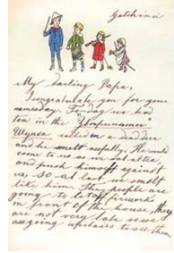 Gatchina
My darling Papa,
I congratulate you for your
namesday. To-day we had
tea in the
and he smelt awfully. He would
come to us as we sat at tea,
and push himself against
us, so at last we smelt
like him. The people are
going to let off fireworks
in front of the house, they
are not very late so we
are going upstairs to see them